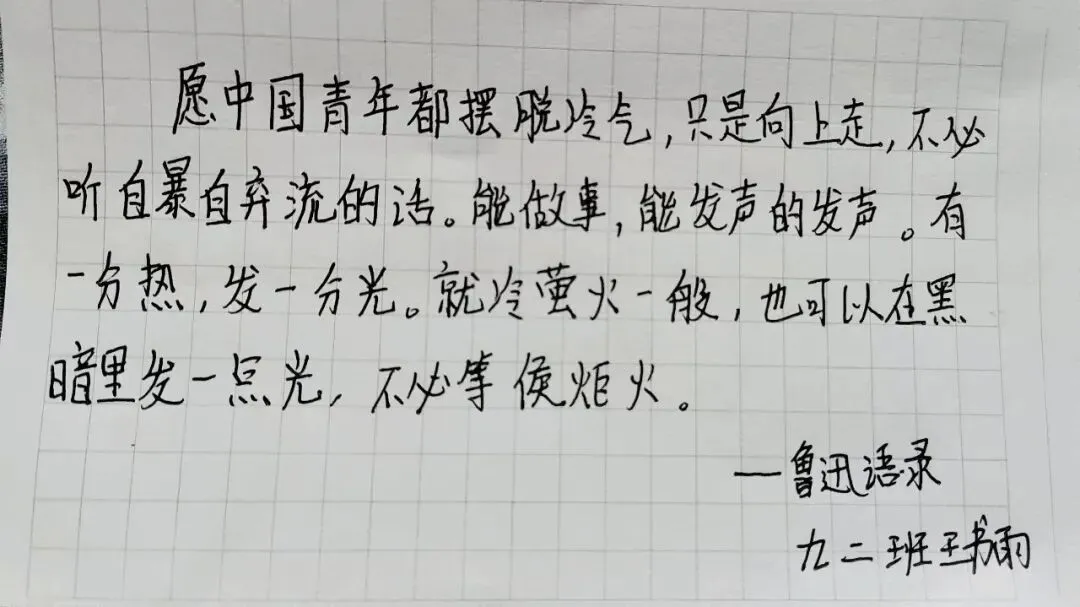 愿中国青年都摆脱冷气,只是向上走,不必
听自暴自弃流的话。能做事,能发声的发声。有
一分热,发一分光。就冷萤火一般,也可以在黑
暗里发一点光,不必等侯炬火。
—鲁迅语录
九二班王书雨